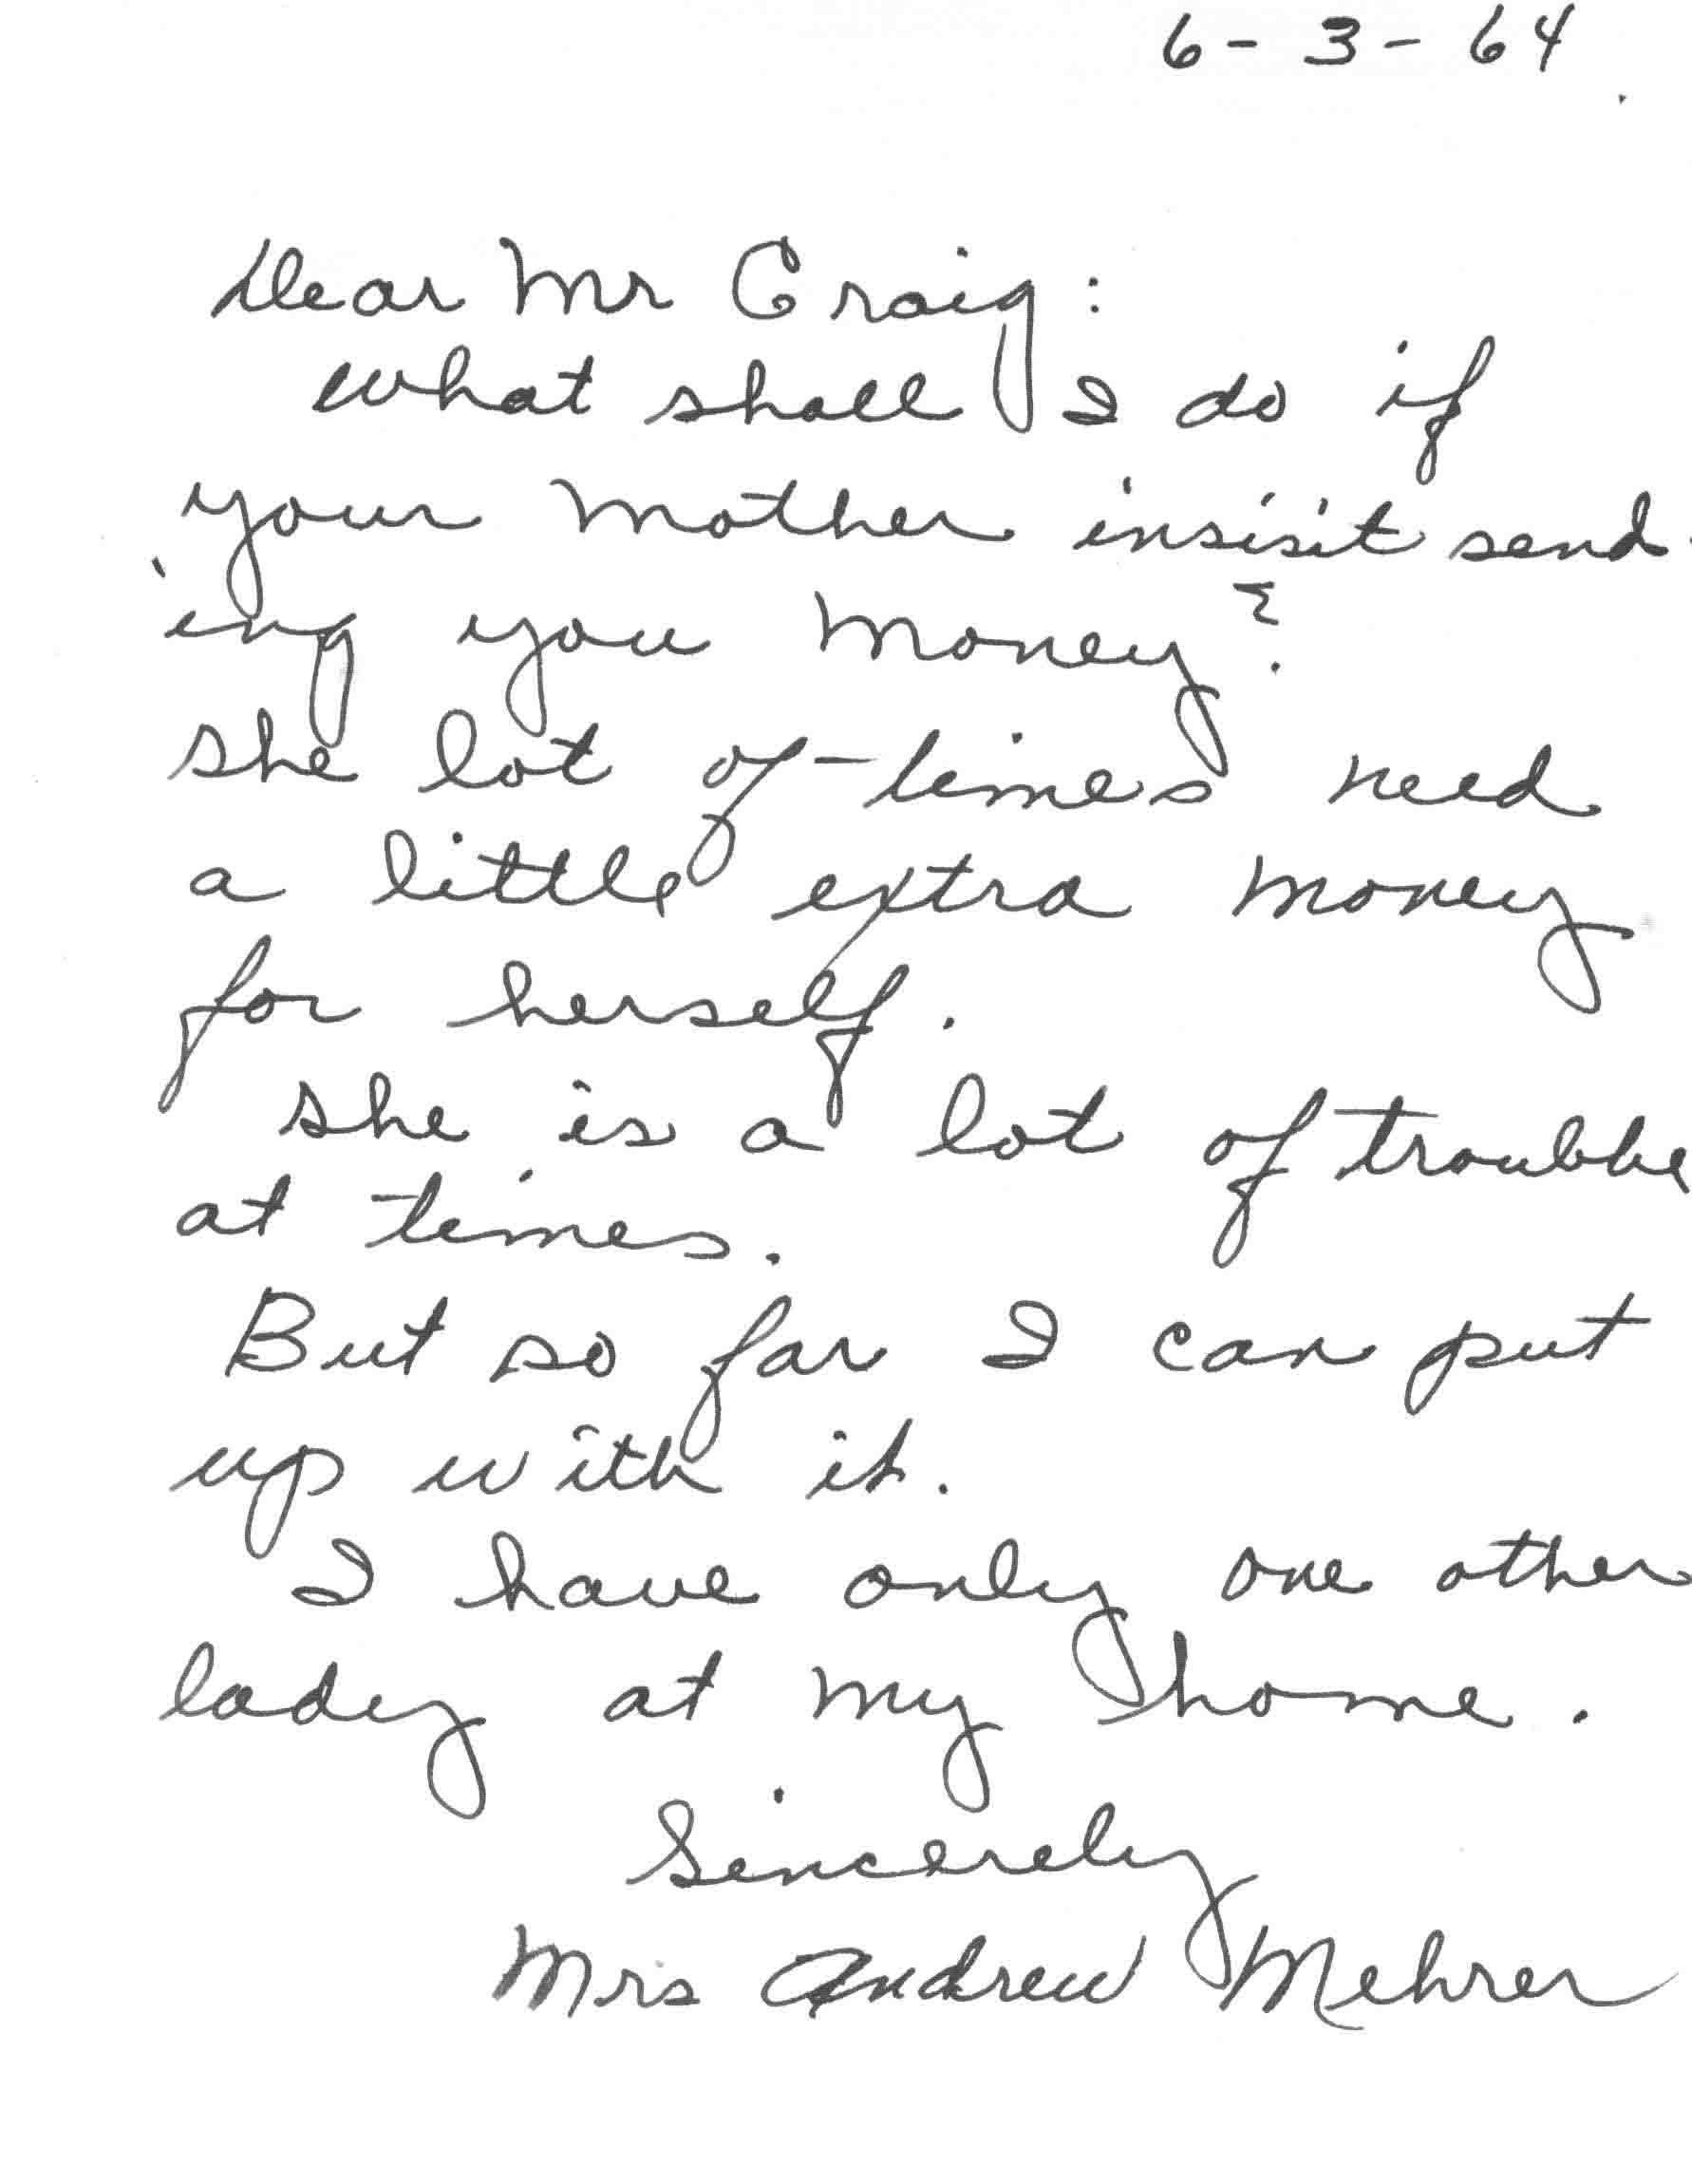 6 - 3 - 64
Dear Mr Craig:
what shall I do if
your mother insisit send-
ing you money?
she lot of-times need
a little extra money
for herself.
she is a lot of trouble
at times.
But so far I can put
up with it.
I have only one other
lady at my home.
Sincerely
Mrs Andrew Mehrer